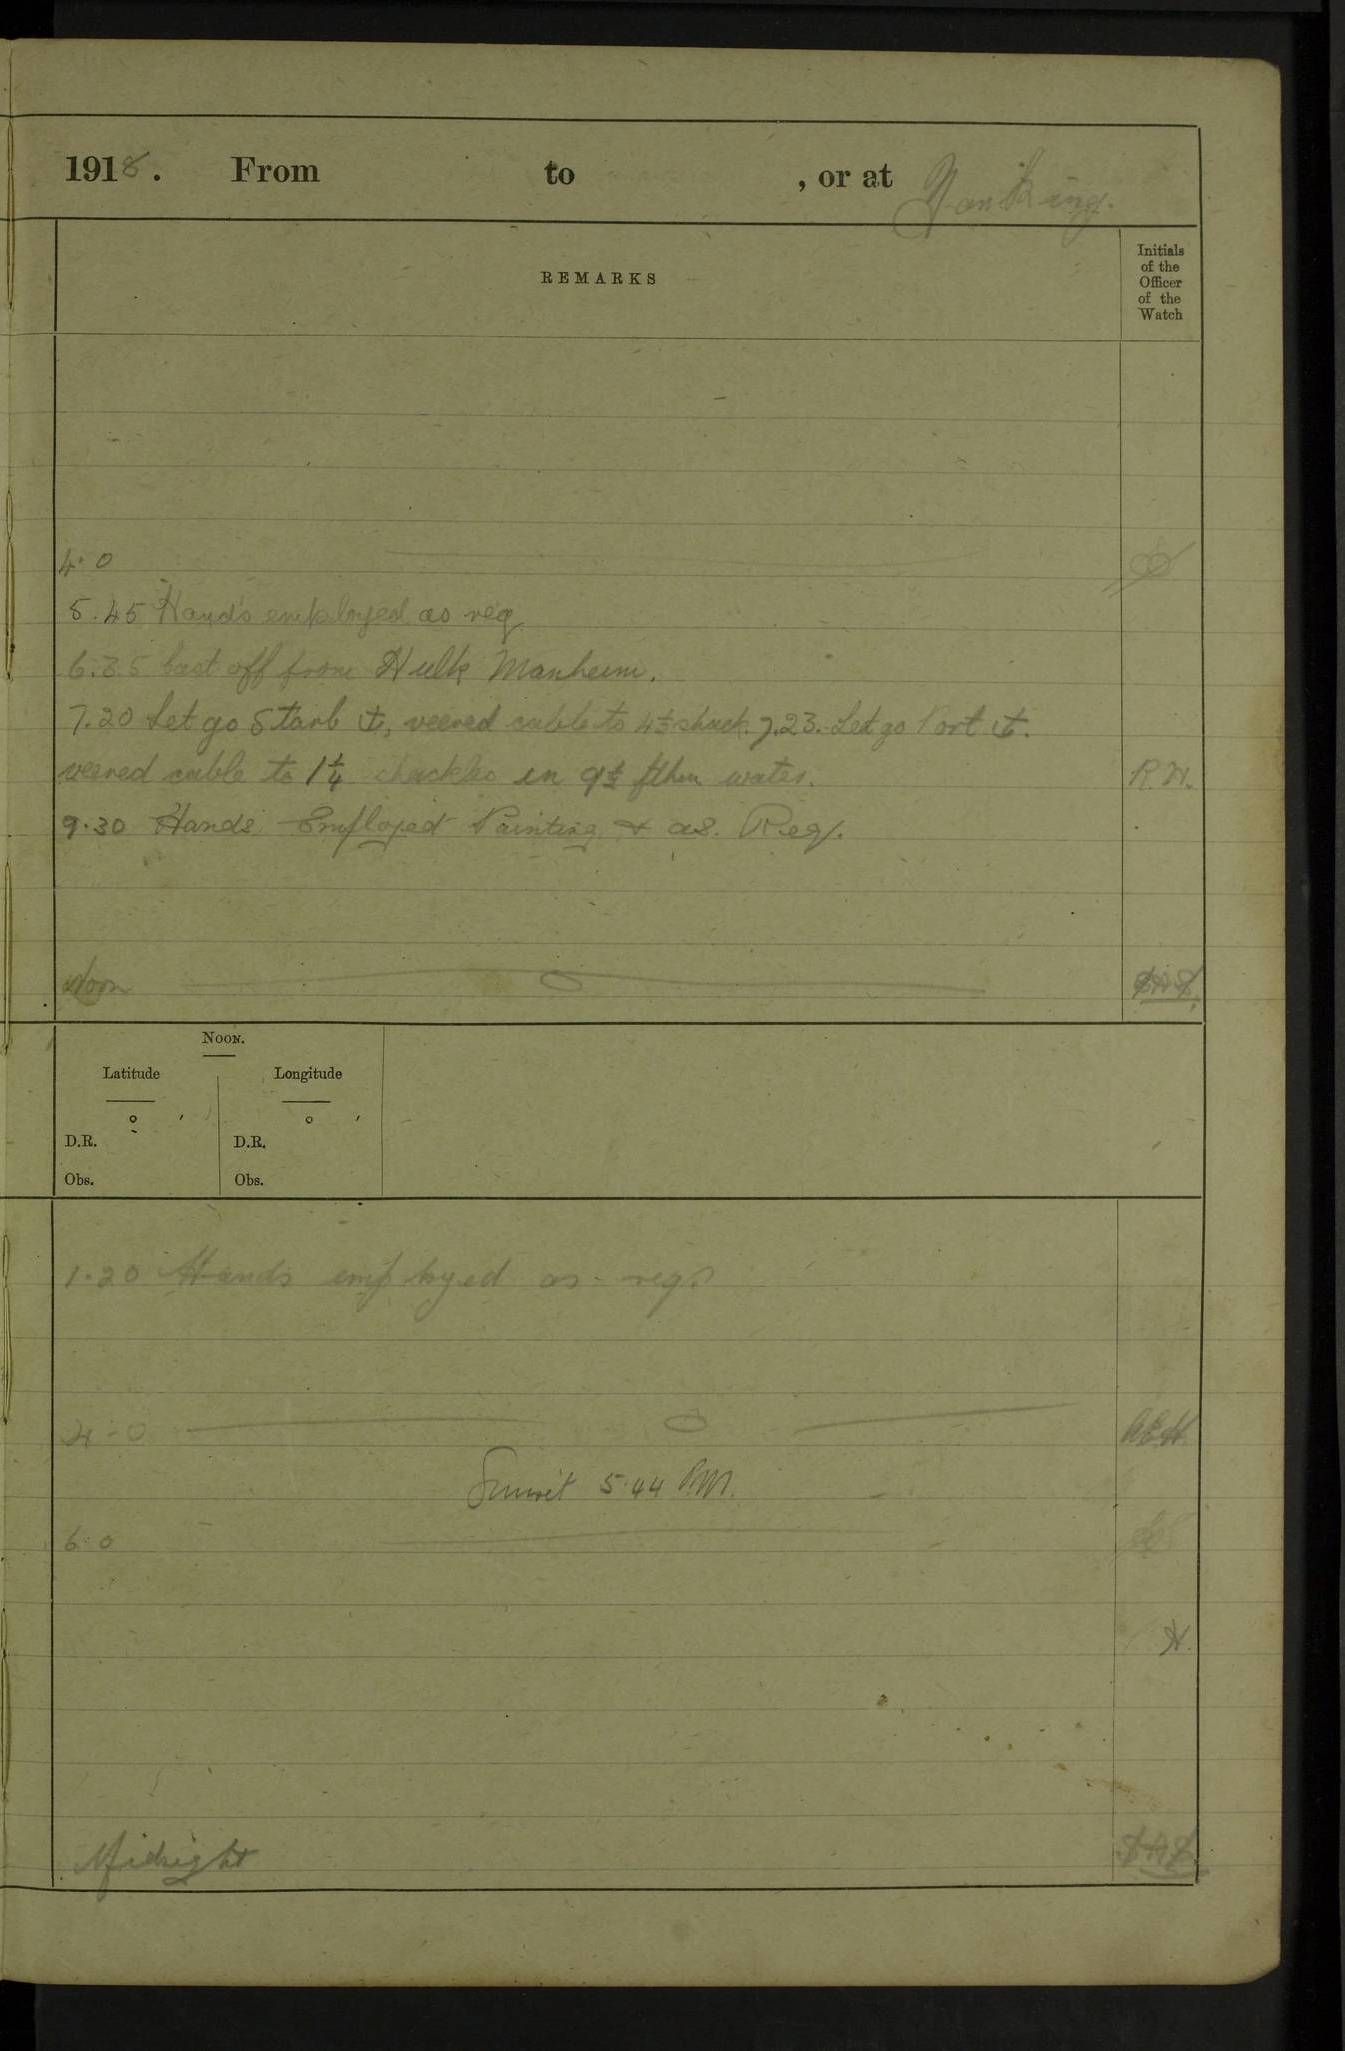 1918. From to , or at Nanking.
REMARKS
Initials of the Officer of the Watch
4.0
5.45 Hands employed as req
6.35 Cast off from Hulk Manheim.
7.20 Let go Starb ⚓, veered cable to 4½ shack. 7.23. Let go Port ⚓.
veered cable to 1¼ shackles in 9½ fthm water. R.H.
9.30 Hands Employed Painting & as. Req.
Noon
NOON.
Latitude Longitude
° ′ ° ′
D.R. D.R.
Obs. Obs.
1.20 Hands employed as reqd
4-0
Sunset 5.44 P.M.
6.0
H.
Midnight